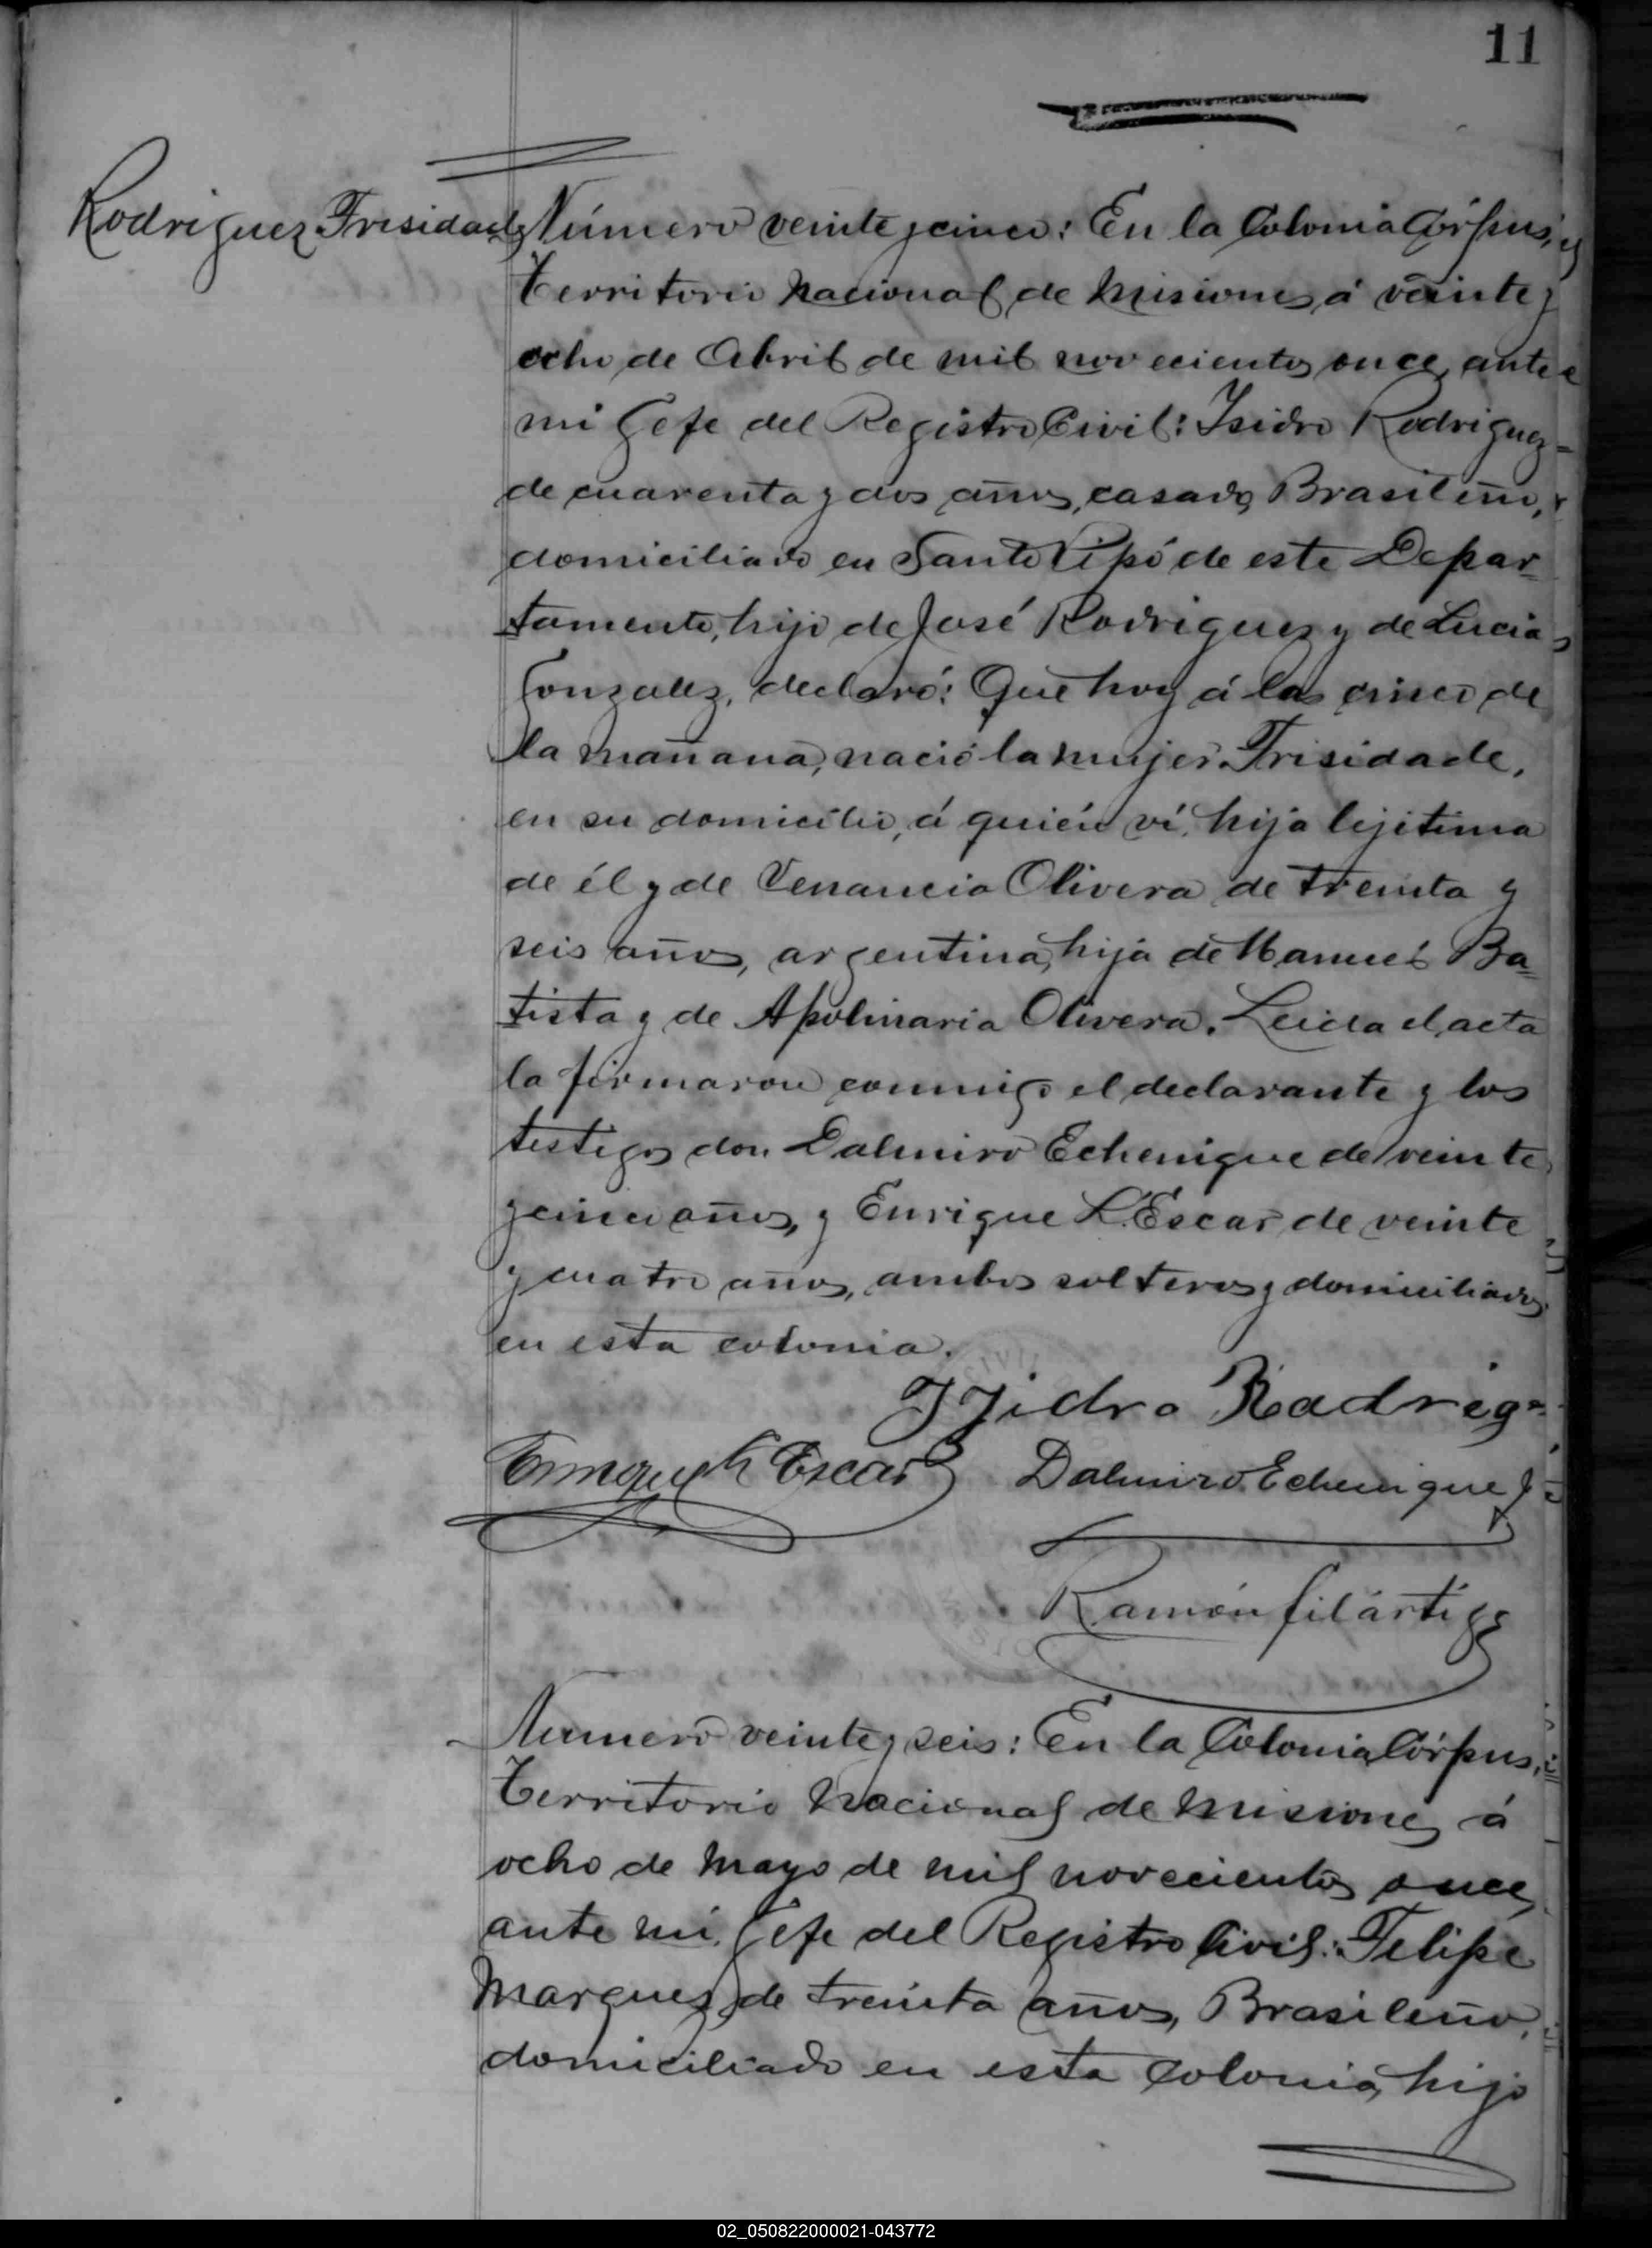 11
Rodriguez Trisidade
Número veinte y cinco: En la Colonia Córpus,
Territorio Nacional de Misiones á veinte y
ocho de Abril de mil novecientos once, ante
mi Gefe del Registro Civil: Isidro Rodriguez
de cuarenta y dos años, casado, Brasileño,
domiciliado en Santo Pipó de este Depar=
tamento, hijo de José Rodriguez y de Lucia
Gonzalez, declaró: Que hoy á las cinco de
la mañana, nació la mujer Trisidade,
en su domicilio, á quién ví, hija lejitima
de él y de Venancia Olivera de treinta y
seis años, argentina, hija de Manuel Ba=
tista y de Apolinaria Olivera. Leida el acta
la firmaron conmigo el declarante y los
testigos don Dalmiro Echenique de veinte
y cinco años, y Enrique L. Escar de veinte
y cuatro años, ambos solteros y domiciliados
en esta colonia.
Isidro Rodrig
Enrique L Escar Dalmiro Echenique
Ramón Filártiga
Numero veinte y seis: En la Colonia Córpus,
Territorio Nacional de Misiones á
ocho de Mayo de mil novecientos once,
ante mi Gefe del Registro Civil: Felipe
Marquez, de treinta años, Brasileño,
domiciliado en esta Colonia, hijo
02_050822000021-043772